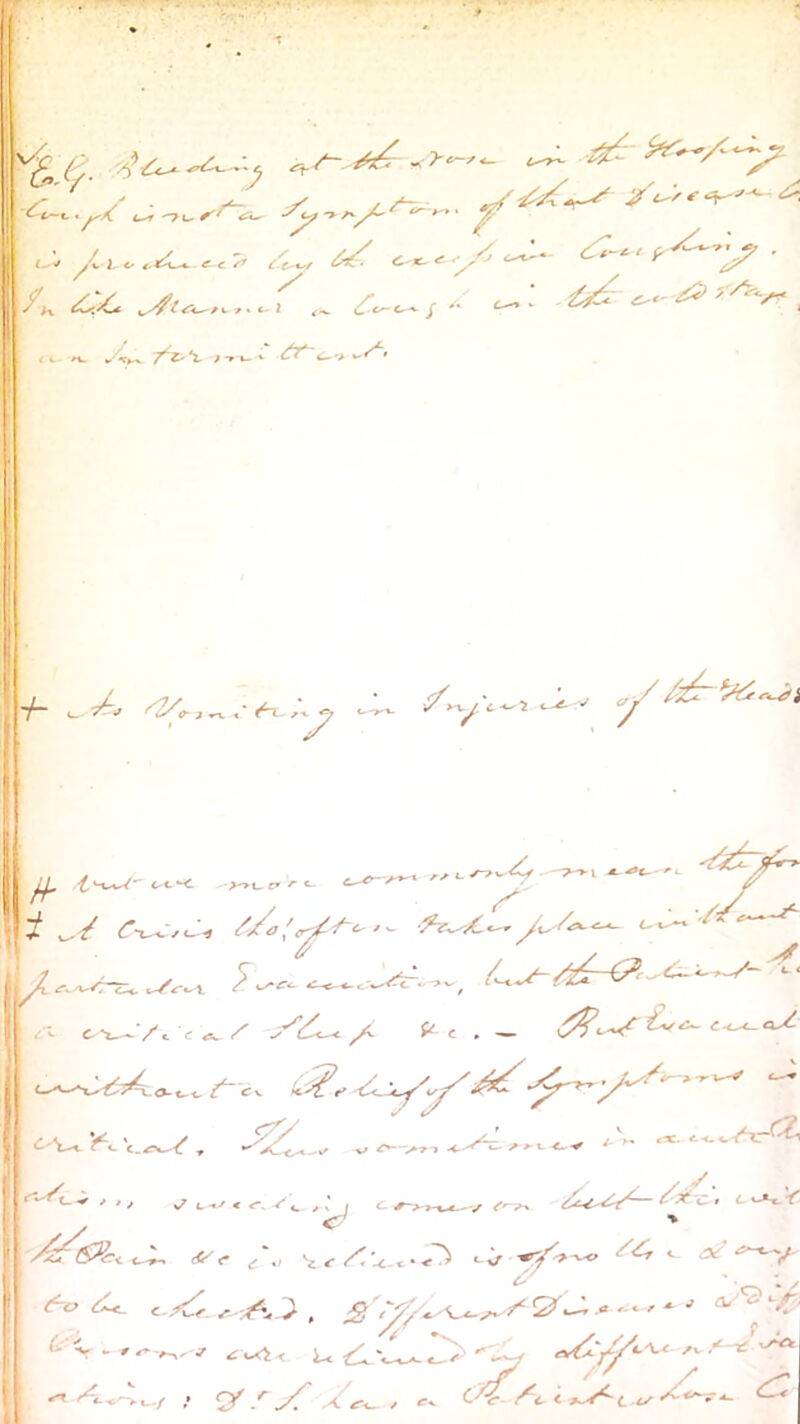 E.G. Bleeding at the Nose in the Hooping
Cough is not a Symptom of that Disease &
is produced by the excess in Coughing.
In like Manner a Cough in the cold stage
an Intermittent.
+ As Vomiting in Injuries of the Head
# but we more commonly mean the for
‡ A Crisis tho' often takes place without
particular Evacuation, but the Patient
a critical Sleep &c. — But Evacuat
without a Relief of the Symptoms is
critical. Thus sometimes in acute Rh
atism, sweating comes on but
the Pain &c is relieved is
to be checked. Different Diseases & Diff
Persons are relieved by different Eva
ations: Dr. has a